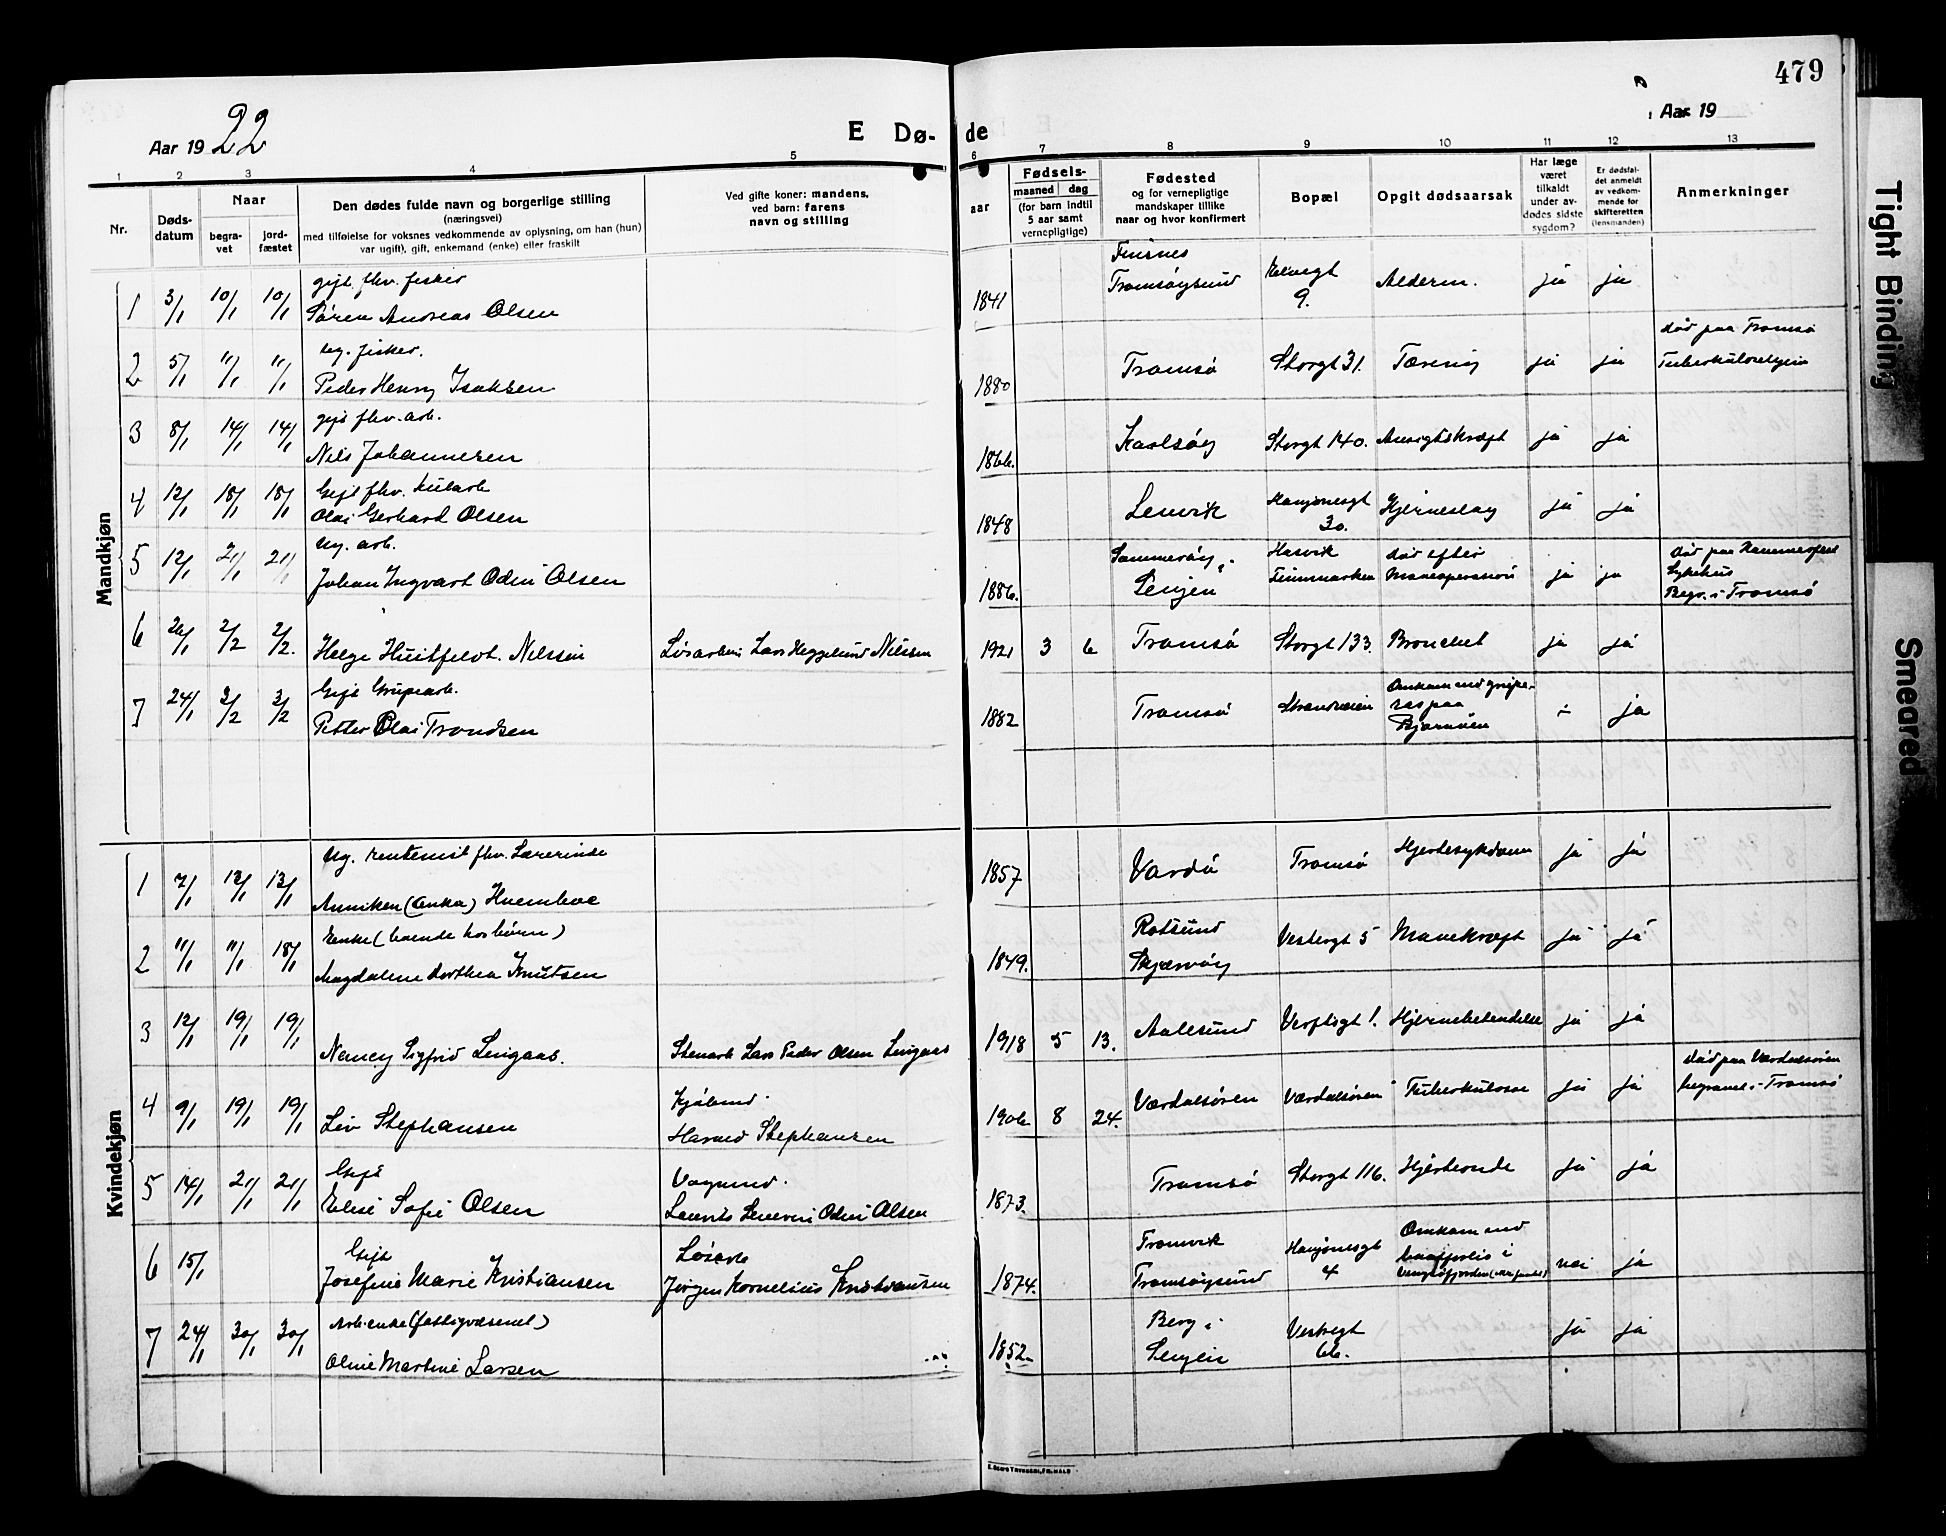 479
Aar 19 22
E Dø- de
Aar 19
1 2 3 4 5 6 7 8 9 10 11 12 13
Nr.
Døds-
datum
Naar
begra-
vet
jord-
fæstet
Den dødes fulde navn og borgerlige stilling
(næringsvei)
med tilføielse for voksnes vedkommende av oplysning, om han (hun)
var ugift), gift, enkemand (enke) eller fraskilt
Ved gifte koner: mandens,
ved barn: farens
navn og stilling
aar
Fødsels-
maaned dag
(for barn indtil
5 aar samt
vernepligtige)
Fødested
og for vernepligtige
mandskaper tillike
naar og hvor konfirmert
Bopæl
Opgit dødsaarsak
Har læge
været
tilkaldt
under av-
dødes sidste
sygdom?
Er dødsfal-
det anmeldt
av vedkom-
mende for
skifteretten
(lensmanden)
Anmerkninger
Mandkjøn
1 3/1 10/1 10/1 gift. fhv. fisker
Søren Andreas Olsen
1841
Finsnes
Tromsøysund
9.
Alderm. ja ja
2 5/1 11/1 11/1 Ug. fisker.
Peder Henry Isaksen
1880 Tromsø Storgt 31. Tæring ja ja
død paa Tromsø
Tuberkulosehjem
3 8/1 14/1 14/1 gift fhv. arb.
Nils Johannesen
1866. Karlsøy Storgt 140. Ansigtskræft ja ja
4 12/1 18/1 18/1 Gift fhv. kularb
Olai Gerhard Olsen
1848 Lenvik
30.
Hjerneslag ja ja
5 12/1 21/1 21/1 Ug. arb.
Johan Ingvart Odin Olsen
1886.
Sommerøy i
Senjen
Hasvik
Finnmarken
død efter
Maveoperasion
ja ja
død paa Hammerfest
Sykehus
Begr. i Tromsø
6 26/1 2/2 2/2. Helge Huitfeldt. Nilssen
Løsarbei Lars Heggelund Nilssen
1921 3 6 Tromsø Storgt 133. Bronchit ja ja
7 24/1 3/2 3/2 Gift Grupearb.
Petter Olai Trondsen
1882 Tromsø Strandveien
Omkom ved grube-
ras paa
Bjørnøen
÷ ja
Kvindekjøn
1 7/1 13/1 13/1 Ug. rentenist fhv. Lærerinde
Anniken (Anka)
1857 Vardø Tromsø Hjertesykdom ja ja
2 11/1 11/1 18/1 Enke (boende hos børn)
Magdalene Dorthea Knutsen
1849.
Rotsund
Skjærvøy
Vestregt 5 Mavekræft ja ja
3 12/1 19/1 19/1 Nancy Sigfrid Lengaas.
Stenarb Lars Peder Olsen Lengaas
1918 5 13. Aalesund Verftsgt 1. Hjernebetendelse ja ja
4 9/1 19/1 19/1 Liv Stephansen
Kjøbmd.
Harald Stephansen
1906 8 24. Værdalsøren Værdalsøren Tuberkulose ja ja
død paa Værdalsøren
begravet i Tromsø
5 14/1 21/1 21/1 Gift
Elise Sofie Olsen
Vognmd.
Laurits Severin Odin Olsen
1873. Tromsø Storgt 116. Hjerteonde ja ja
6 15/1 Gift
Josefine Marie Kristiansen
Løsarb
Jørgen Kornelius Kristiansen
1874.
Tromvik
Tromsøysund
4
Omkom ved
baatforlis i
Vengsøfjorden
nei ja
7 24/1 30/1 30/1 Arb.enke (fattigvæsenet)
Oline Martine Larsen
1852.
Berg i
Senjen
Vestregt
66.
ja ja
Tight Binding
Smeared